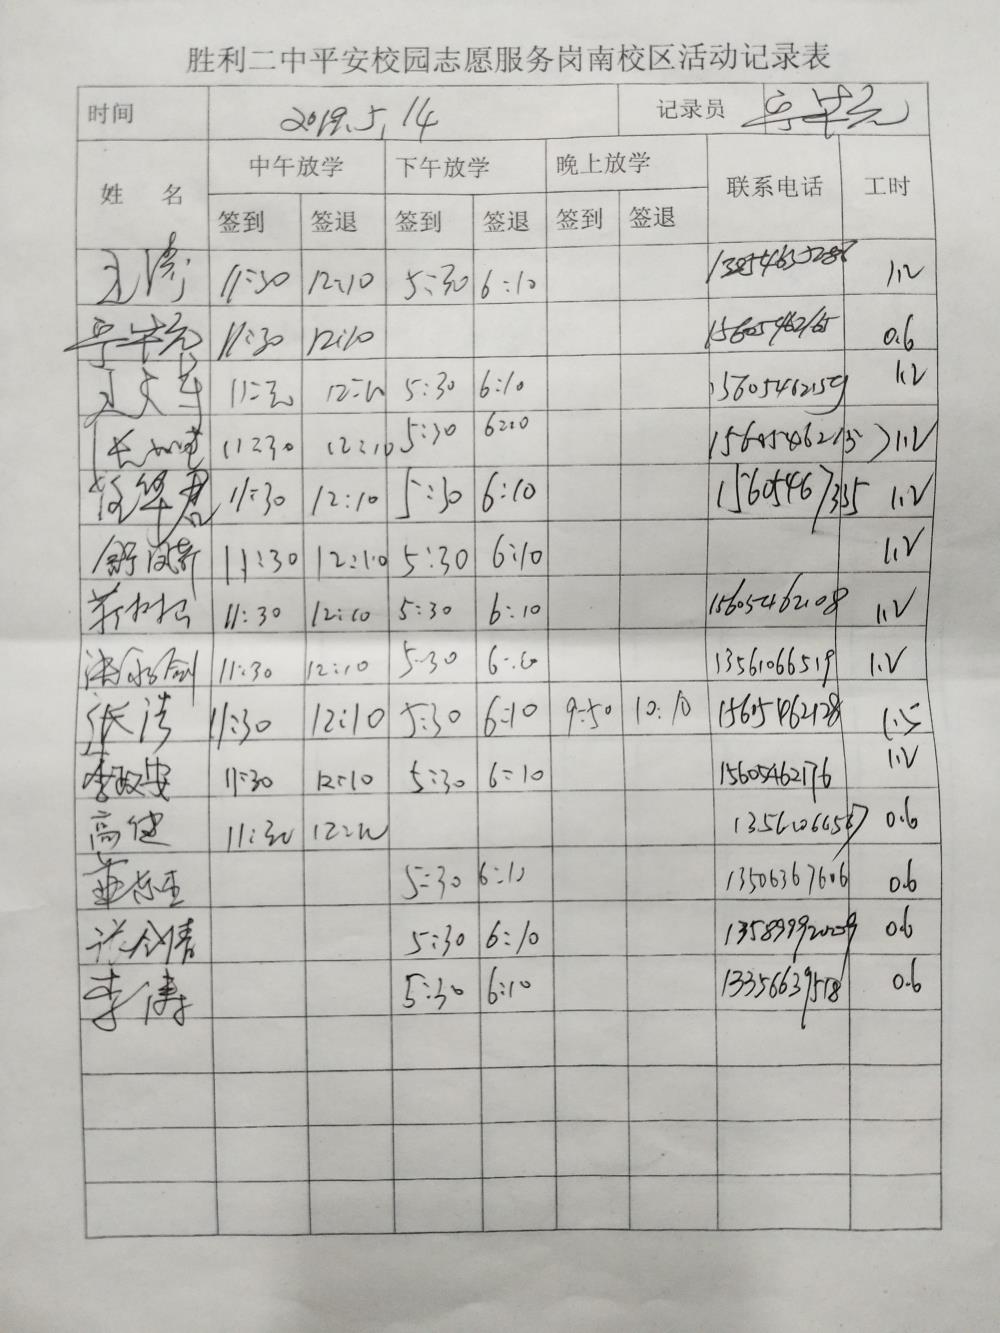 胜利二中平安校园志愿服务岗南校区活动记录表
时间 2019.5.14 记录员
姓 名 中午放学 下午放学 晚上放学 联系电话 工时
签到 签退 签到 签退 签到 签退
王涛 11:30 12:10 5:30 6:10 1.2
11:30 12:10 15605462165 0.6
11:30 12:10 5:30 6:10 15605462159 1.2
11:30 12:10 5:30 6:10 1.2
11:30 12:10 5:30 6:10 15605467335 1.2
11:30 12:10 5:30 6:10 1.2
11:30 12:10 5:30 6:10 15605462108 1.2
11:30 12:10 5:30 6:10 13561066519 1.2
张浩 11:30 12:10 5:30 6:10 9:50 10:10 15605462128 1.5
李政安 11:30 12:10 5:30 6:10 15605462176 1.2
高健 11:30 12:10 0.6
5:30 6:10 13506367606 0.6
5:30 6:10 13589992009 0.6
李涛 5:30 6:10 13356639518 0.6